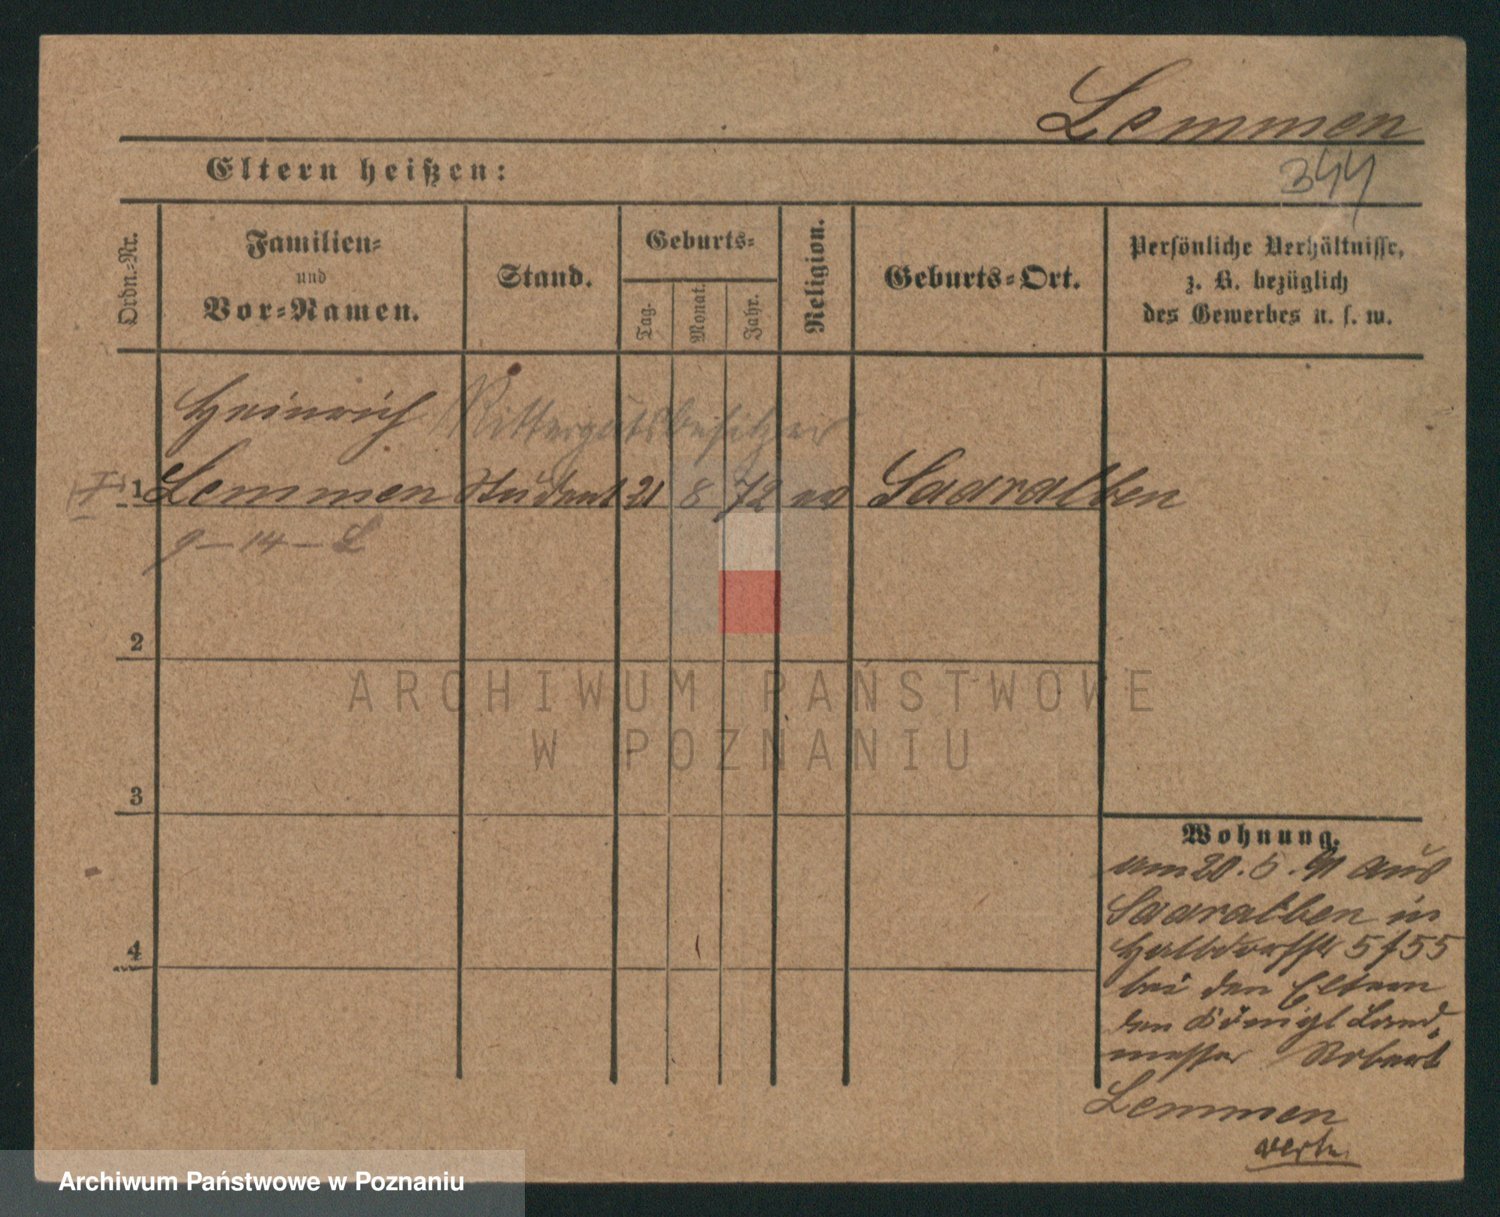 Lemmen
344
Eltern heißen:
Ordn.-Nr.
Familien-
und
Vor-Namen.
Stand.
Geburts-
Tag.
Monat.
Jahr.
Religion.
Geburts-Ort.
Persönliche Verhältnisse,
z. B. bezüglich
des Gewerbes u. s. w.
Heinrich Rittergutsbesitzer
1 Lemmen Student 21 8 72 ev Saaralben
9-14-L
2
ARCHIWUM PAŃSTWOWE
W POZNANIU
3
Wohnung.
am 20. 5. 91 aus
Saaralben in
Halbdorfstr 5 f 55
bei den Eltern
den Königl Land-
messer Robert
Lemmen
verte
4
Archiwum Państwowe w Poznaniu